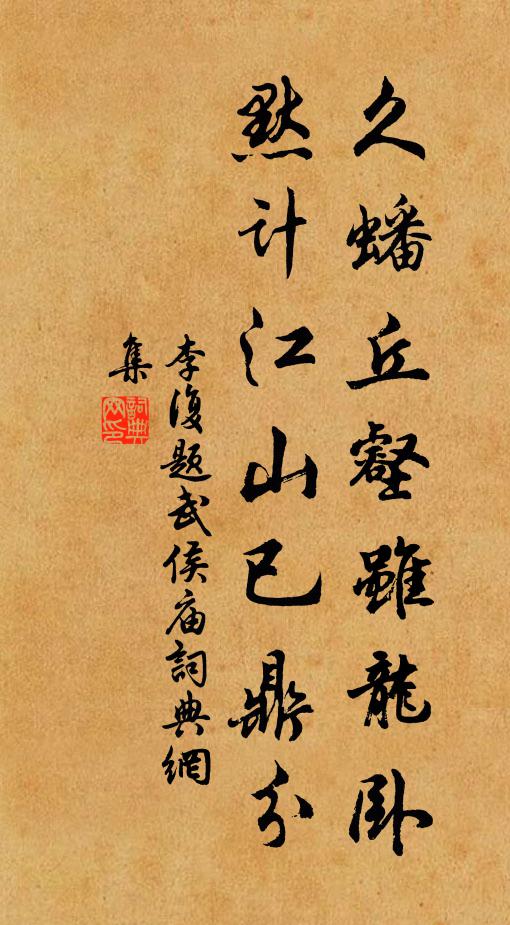 久蟠丘壑雖龍卧
黙计江山已鼎分
李復题武侯庙詞典網
集
詞典網印